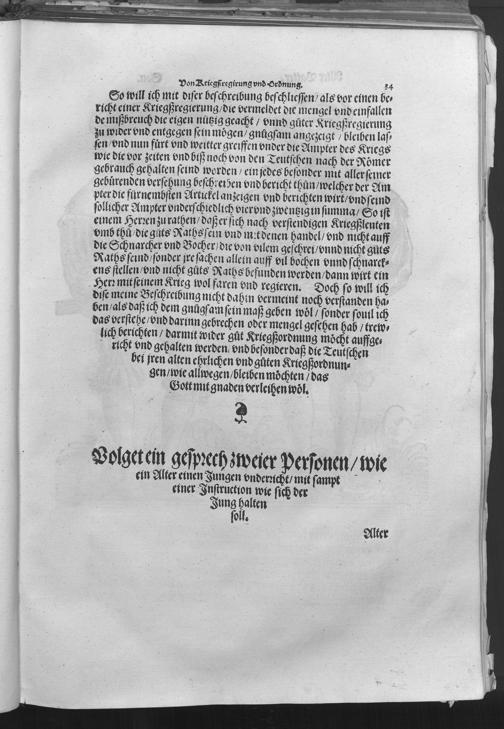 Von Kriegßregierung vnd Ordnung. 34
So will ich mit diser beschreibung beschliessen / als vor einen be-
richt einer Kriegßregierung / die vermeldet die mengel vnd einfallen
de mißbreuch die eigen nützig geacht / vnnd güter Kriegßregierung
zu wider vnd entgegen sein mögen / gnügsam angezeigt / bleiben las-
sen / vnd nun fürt vnd weitter greiffen vnder die Ampter des Kriegs
wie die vor zeiten vnd biß noch von den Teutschen nach der Römer
gebrauch gehalten seind worden / ein jedes besonder mit aller seiner
gebürenden versehung beschreiben vnd bericht thün / welcher der Am
pter die fürnembsten Artickel anzeigen vnd berichten wirt / vnd seind
sollicher Ampter vnderschiedlich vier vnd zwenzig in summa / So ist
einem Herren zu rathen / daß er sich nach verstendigen Kriegßleuten
vmb thü die güts Raths sein vnd mit denen handel / vnd nicht auff
die Schnarcher vnd Bocher / die von vilem geschrei / vnnd nicht güts
Raths seind / sonder jre sachen allein auff vil bochen vnnd schnarck-
ens stellen / vnd nicht güts Raths befunden werden / dann wirt ein
Herr mit seinem Krieg wol faren vnd regieren. Doch so will ich
dise meine Beschreibung nicht dahin vermeint noch verstanden ha-
ben / als daß ich dem gnügsam sein maß geben wöl / sonder souil ich
das verstehe / vnd darinn gebrechen oder mengel gesehen hab / trew-
lich berichten / darmit wider güt Kriegßordnung möcht auffge-
richt vnd gehalten werden / vnd besonder daß die Teutschen
bei jren alten ehrlichen vnd güten Kriegßordnun-
gen / wie allwegen / bleiben möchten / das
Gott mit gnaden verleihen wöl.
Volget ein gesprech zweier Personen / wie
ein Alter einen Jungen vnderricht / mit sampt
einer Instruction wie sich der
Jung halten
soll.
Alter